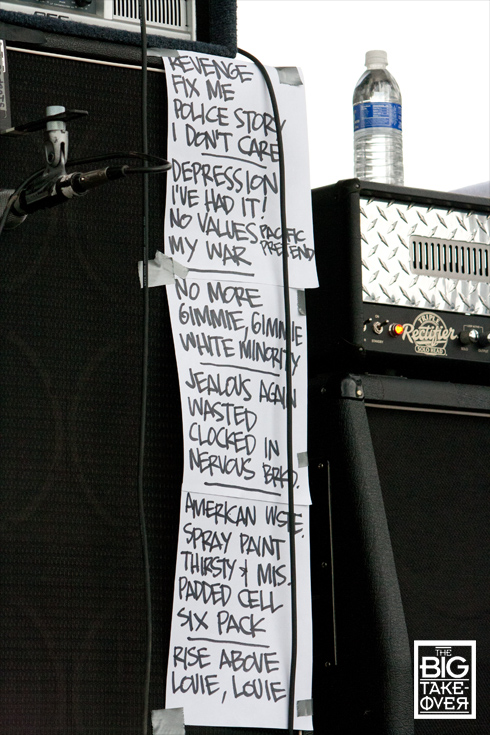 REVENGE
FIX ME
POLICE STORY
I DON'T CARE
DEPRESSION
I'VE HAD IT!
NO VALUES PACIFIC
PRETEND
MY WAR
NO MORE
GIMMIE, GIMMIE
WHITE MINORITY
JEALOUS AGAIN
WASTED
CLOCKED IN
NERVOUS BRKD.
AMERICAN WSTE.
SPRAY PAINT
THIRSTY & MIS.
PADDED CELL
SIX PACK
RISE ABOVE
LOUIE, LOUIE
TRIPLE
Rectifier
SOLO HEAD
THE
BIG
TAKE-
OVER